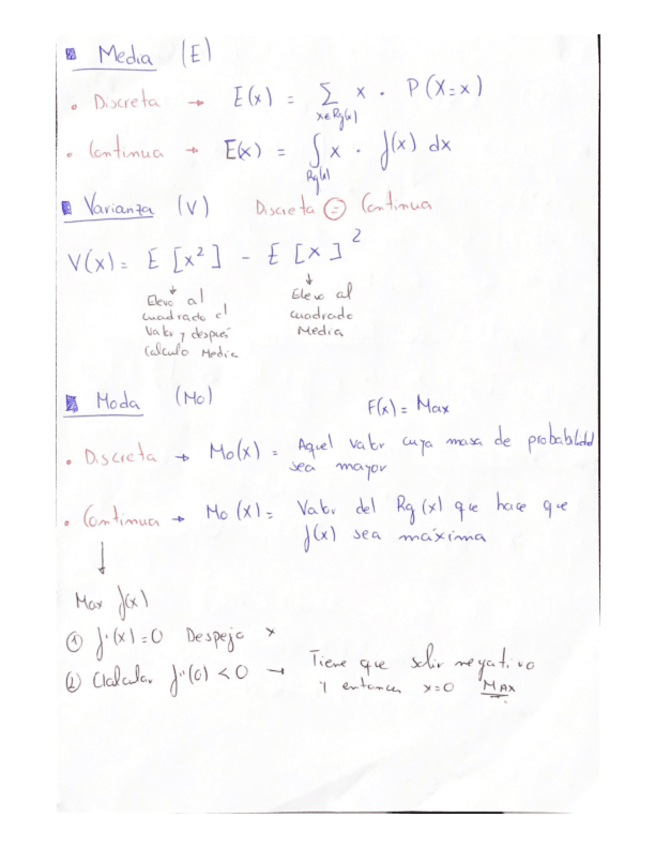 Media (E)
• Discreta → E(x) = Σ x · P(X=x)
x∈Rg(x)
• Continua → E(x) = ∫ x · f(x) dx
Rg(x)
Varianza (V) Discreta = Continua
V(x) = E [x²] - E [x]²
↓ ↓
Elevo al Elevo al
cuadrado el cuadrado
Valor y después Media
Calculo Media
Moda (Mo) F(x) = Max
• Discreta → Mo(x) = Aquel valor cuya masa de probabilidad
sea mayor
• Continua → Mo (x) = Valor del Rg (x) que hace que
f(x) sea máxima
↓
Max f(x)
① f'(x)=0 Despejo x
② Calcular f''(0) <0 → Tiene que salir negativo
y entonces x=0 MAX